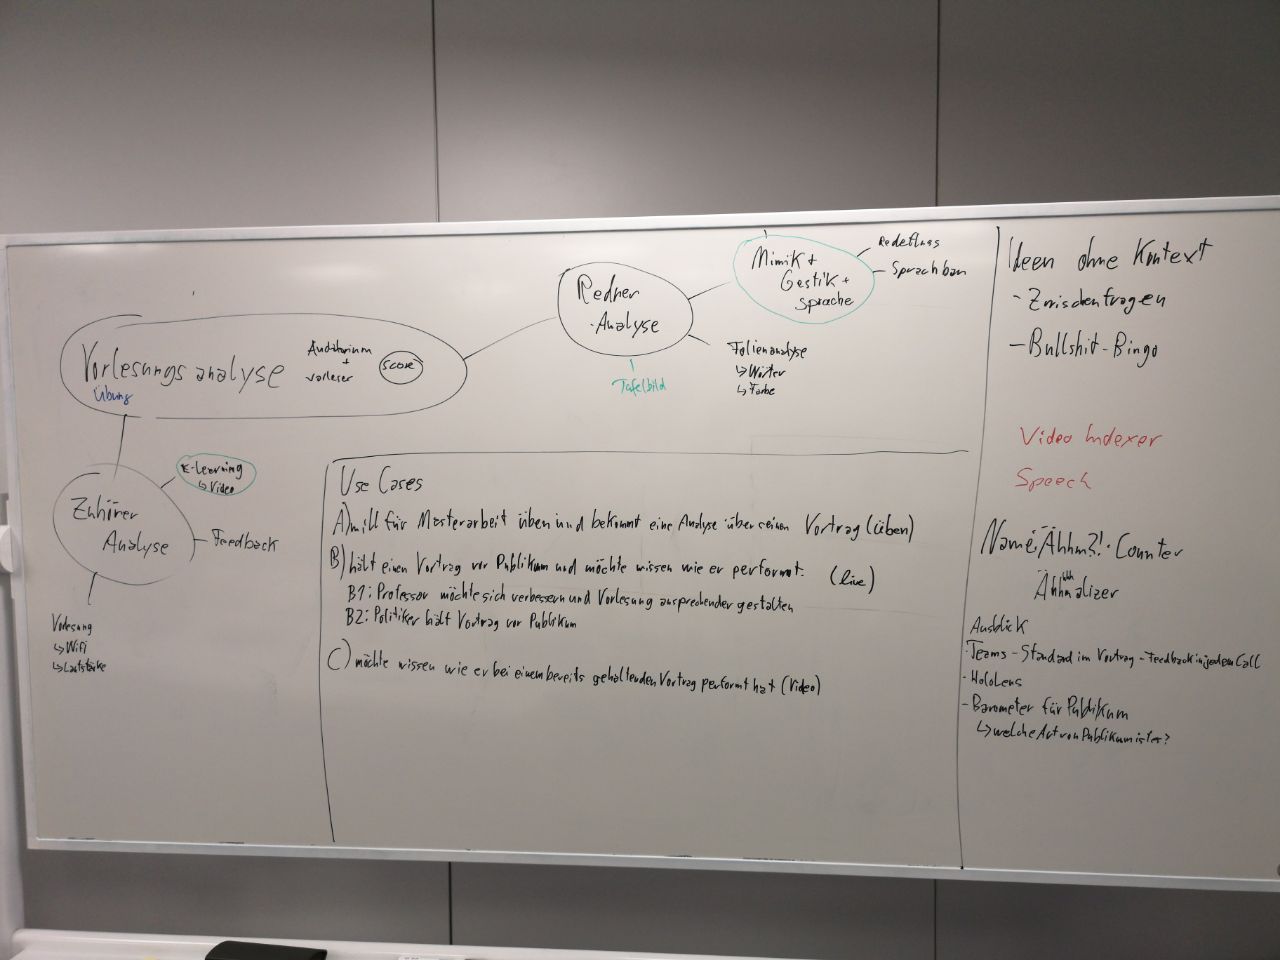 Vorlesungsanalyse
Übung
Auditorium
+
Vorleser
Score
Redner
-Analyse
Tafelbild
Mimik +
Gestik +
Sprache
Redefluss
Sprachbar
Folienanalyse
↳ Wörter
↳ Farbe
Zuhörer
Analyse
E-Learning
↳ Video
Feedback
Vorlesung
↳ Wifi
↳ Lautstärke
Use Cases
A) will für Masterarbeit üben und bekommt eine Analyse über seinen Vortrag (üben)
B) hält einen Vortrag vor Publikum und möchte wissen wie er performt. (live)
B1: Professor möchte sich verbessern und Vorlesung ansprechender gestalten
B2: Politiker hält Vortrag vor Publikum
C) möchte wissen wie er bei einem bereits gehaltenden Vortrag performt hat (Video)
Ideen ohne Kontext
- Zwischenfragen
- Bullshit-Bingo
Video Indexer
Speech
Name: Ähhm?!-Counter
Ähhmalizer
Ausblick
- Teams - Standard im Vortrag - Feedback in jedem Call
- HoloLens
- Barometer für Publikum
↳ welche Art von Publikum ist es?